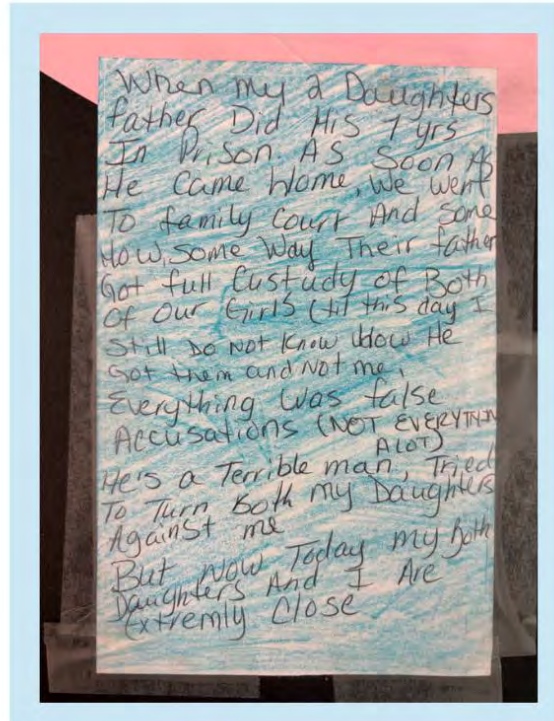 When my 2 Daughters
father Did His 7 yrs
In Prison. As Soon As
He Came Home, We went
To family Court And Some
How, Some Way Their father
Got full Custudy of Both
Of Our Girls (til this day I
Still Do Not Know How He
Got them and Not me,
Everything Was false
Accusations (NOT EVERYTHIN
ALOT)
He's a Terrible man, Tried
To Turn Both my Daughters
Against me
But Now Today my Both
Daughters And I Are
Extremly Close